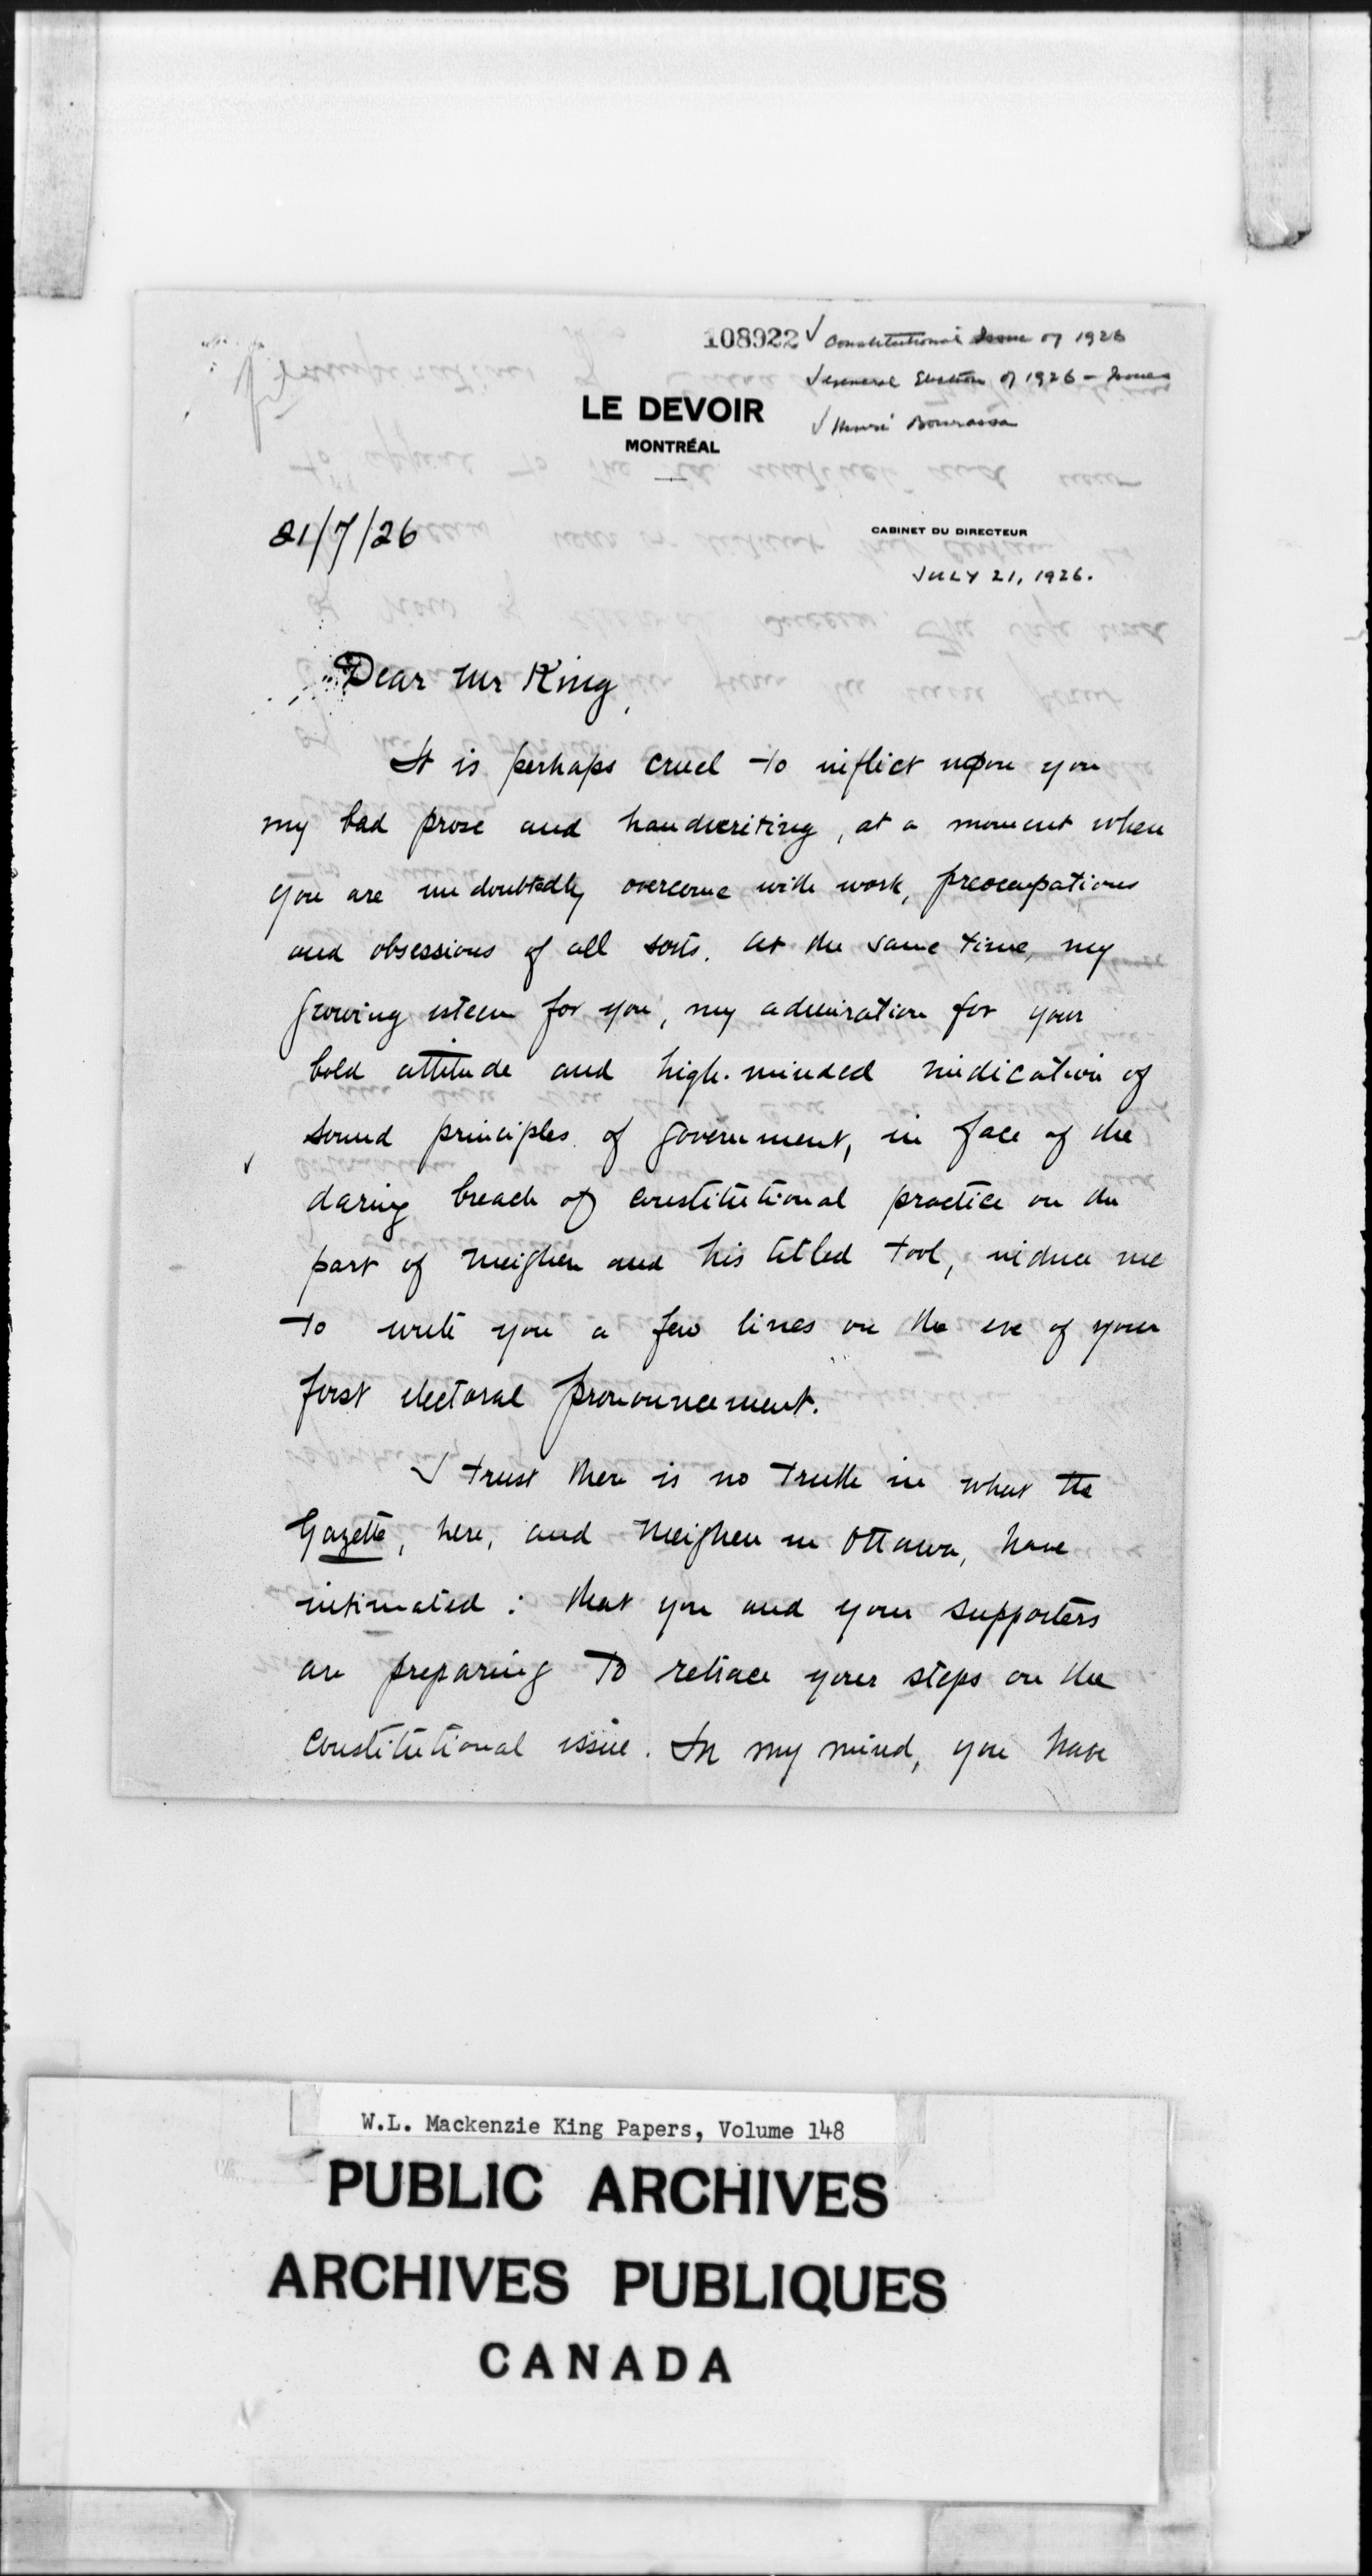 108922 ✓ Constitutional Issue of 1926
✓ General Election of 1926 - Issues
LE DEVOIR
✓ Henri Bourassa
MONTRÉAL
21/7/26
CABINET DU DIRECTEUR
JULY 21, 1926.
Dear Mr King,
It is perhaps cruel to inflict upon you
my bad prose and handwriting, at a moment when
you are undoubtedly overcome with work, preoccupations
and obsessions of all sorts. At the same time, my
growing esteem for you, my admiration for your
bold attitude and high-minded vindication of
sound principles of government, in face of the
✓
daring breach of constitutional practice on the
part of Meighen and his titled tool, induce me
to write you a few lines on the eve of your
first electoral pronouncement.
I trust there is no truth in what the
Gazette, here, and Meighen in Ottawa, have
intimated: that you and your supporters
are preparing to retrace your steps on the
constitutional issue. In my mind, you have
W.L. Mackenzie King Papers, Volume 148
PUBLIC ARCHIVES
ARCHIVES PUBLIQUES
CANADA